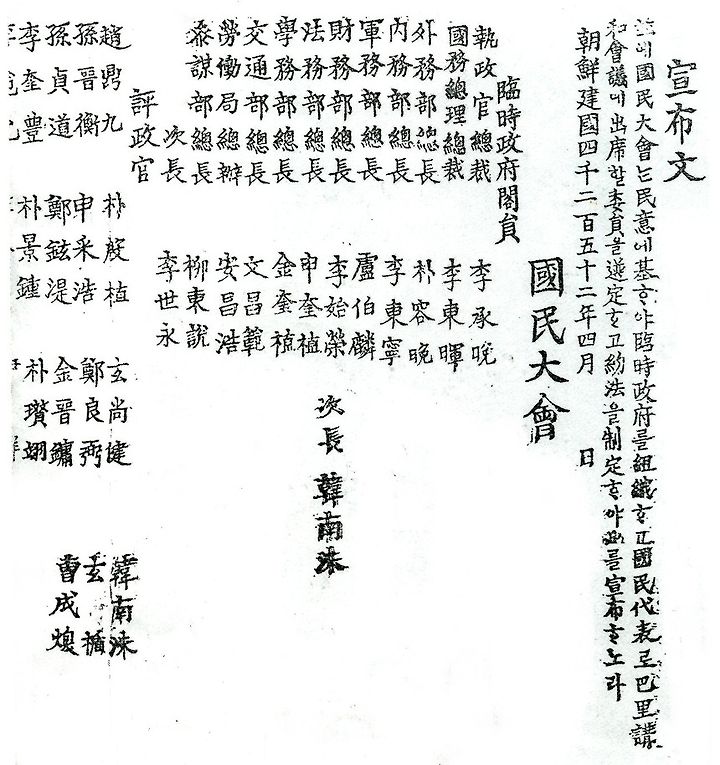 宣布文
에國民大會는民意에基ᄒᆞ야臨時政府를組織ᄒᆞ고國民代表로巴里講
和會議에出席할委員을選定ᄒᆞ고約法을制定ᄒᆞ야此를宣布ᄒᆞ노라
朝鮮建國四千二百五十二年四月 日
國民大會
臨時政府閣員
執政官總裁 李承晩
國務總理總裁 李東暉
外務部總長 朴容晩
內務部總長 李東寧
軍務部總長 盧伯麟
財務部總長 李始榮 次長 韓南洙
法務部總長 申奎植
學務部總長 金奎植
交通部總長 文昌範
勞働局總辦 安昌浩
參謀部總長 柳東說
次長 李世永
評政官
趙鼎九 朴殷植 玄尙健 韓南洙
孫晋衡 申采浩 鄭良弼 玄楯
孫貞道 鄭鉉湜 金晋鏞 曺成煥
李奎豊 朴景鍾 朴瓚翊